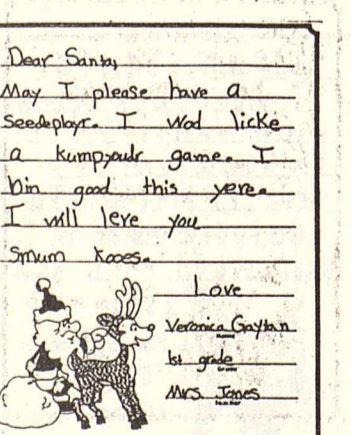 Dear Santa,
May I please have a
Seedeplayr. I wod licke
a kumpyoudr game. I
bin good this yere.
I will leve you
Smum kooes.
Love
Veronica Gaytan
1st grade
Mrs Jones